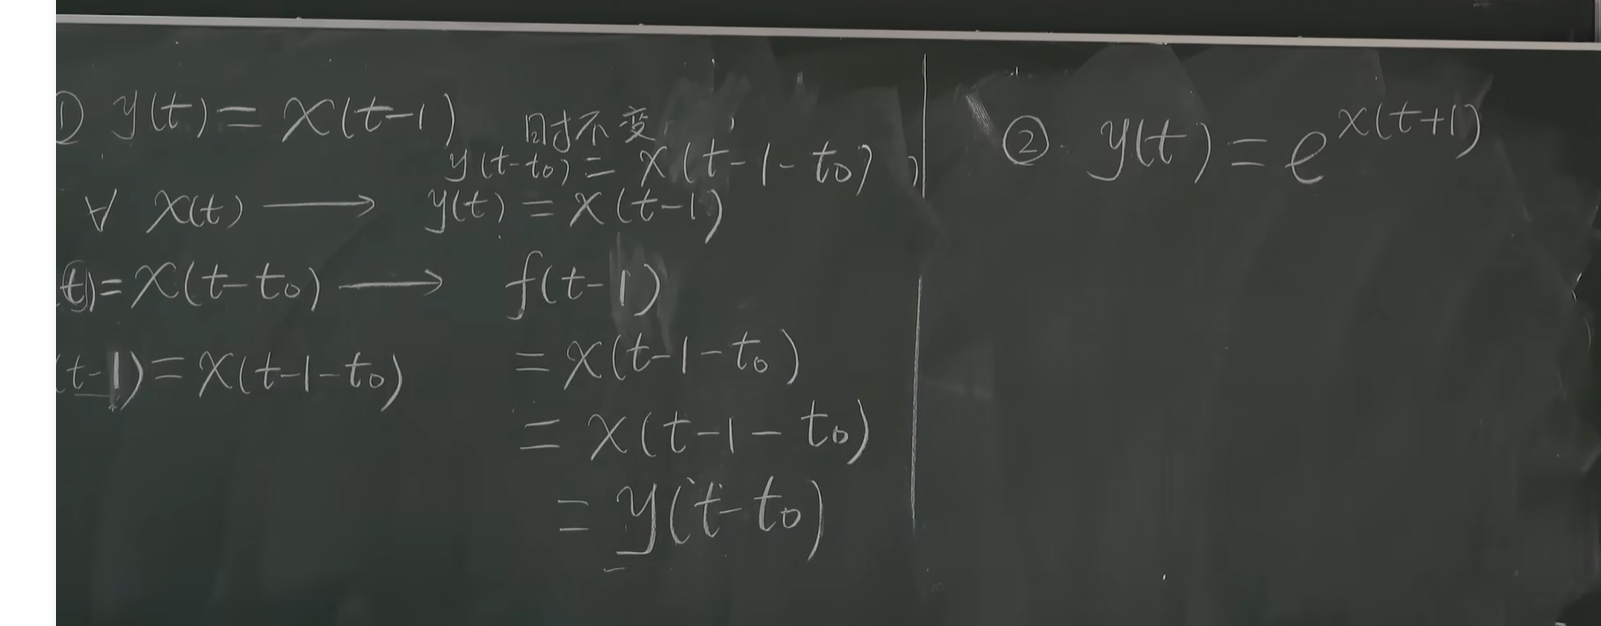 ① y(t) = x(t-1) 时不变
y(t-t₀) = x(t-1-t₀)
∀ x(t) ⟶ y(t) = x(t-1)
(t) = x(t-t₀) ⟶ f(t-1)
(t-1) = x(t-1-t₀) = x(t-1-t₀)
= x(t-1-t₀)
= y(t-t₀)
② y(t) = e^{x(t+1)}